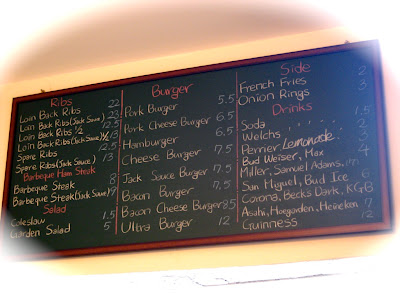 Ribs
Loin Back Ribs 22
Loin Back Ribs (Jack Sauce) 23
Loin Back Ribs ½ 12.5
Loin Back Ribs (Jack Sauce) ½ 13
Spare Ribs 12.5
Spare Ribs (Jack Sauce) 13
Barbeque Ham Steak
Barbeque Steak 8
Barbeque Steak (Jack Sauce) 9
Salad
Coleslaw 1.5
Garden Salad 5
Burger
Pork Burger 5.5
Pork Cheese Burger 6.5
Hamburger 6.5
Cheese Burger 7.5
Jack Sauce Burger 7.5
Bacon Burger 7.5
Bacon Cheese Burger 8.5
Ultra Burger 12
Side
French Fries 2
Onion Rings 3
Drinks
Soda 1.5
Welchs 2
Perrier Lemonade 3
Bud Weiser, Max 4
Miller, Samuel Adams,
San Miguel, Bud Ice 6
Corona, Becks Dark, KGB
Asahi, Hoegarden, Heineken 7
Guinness 12